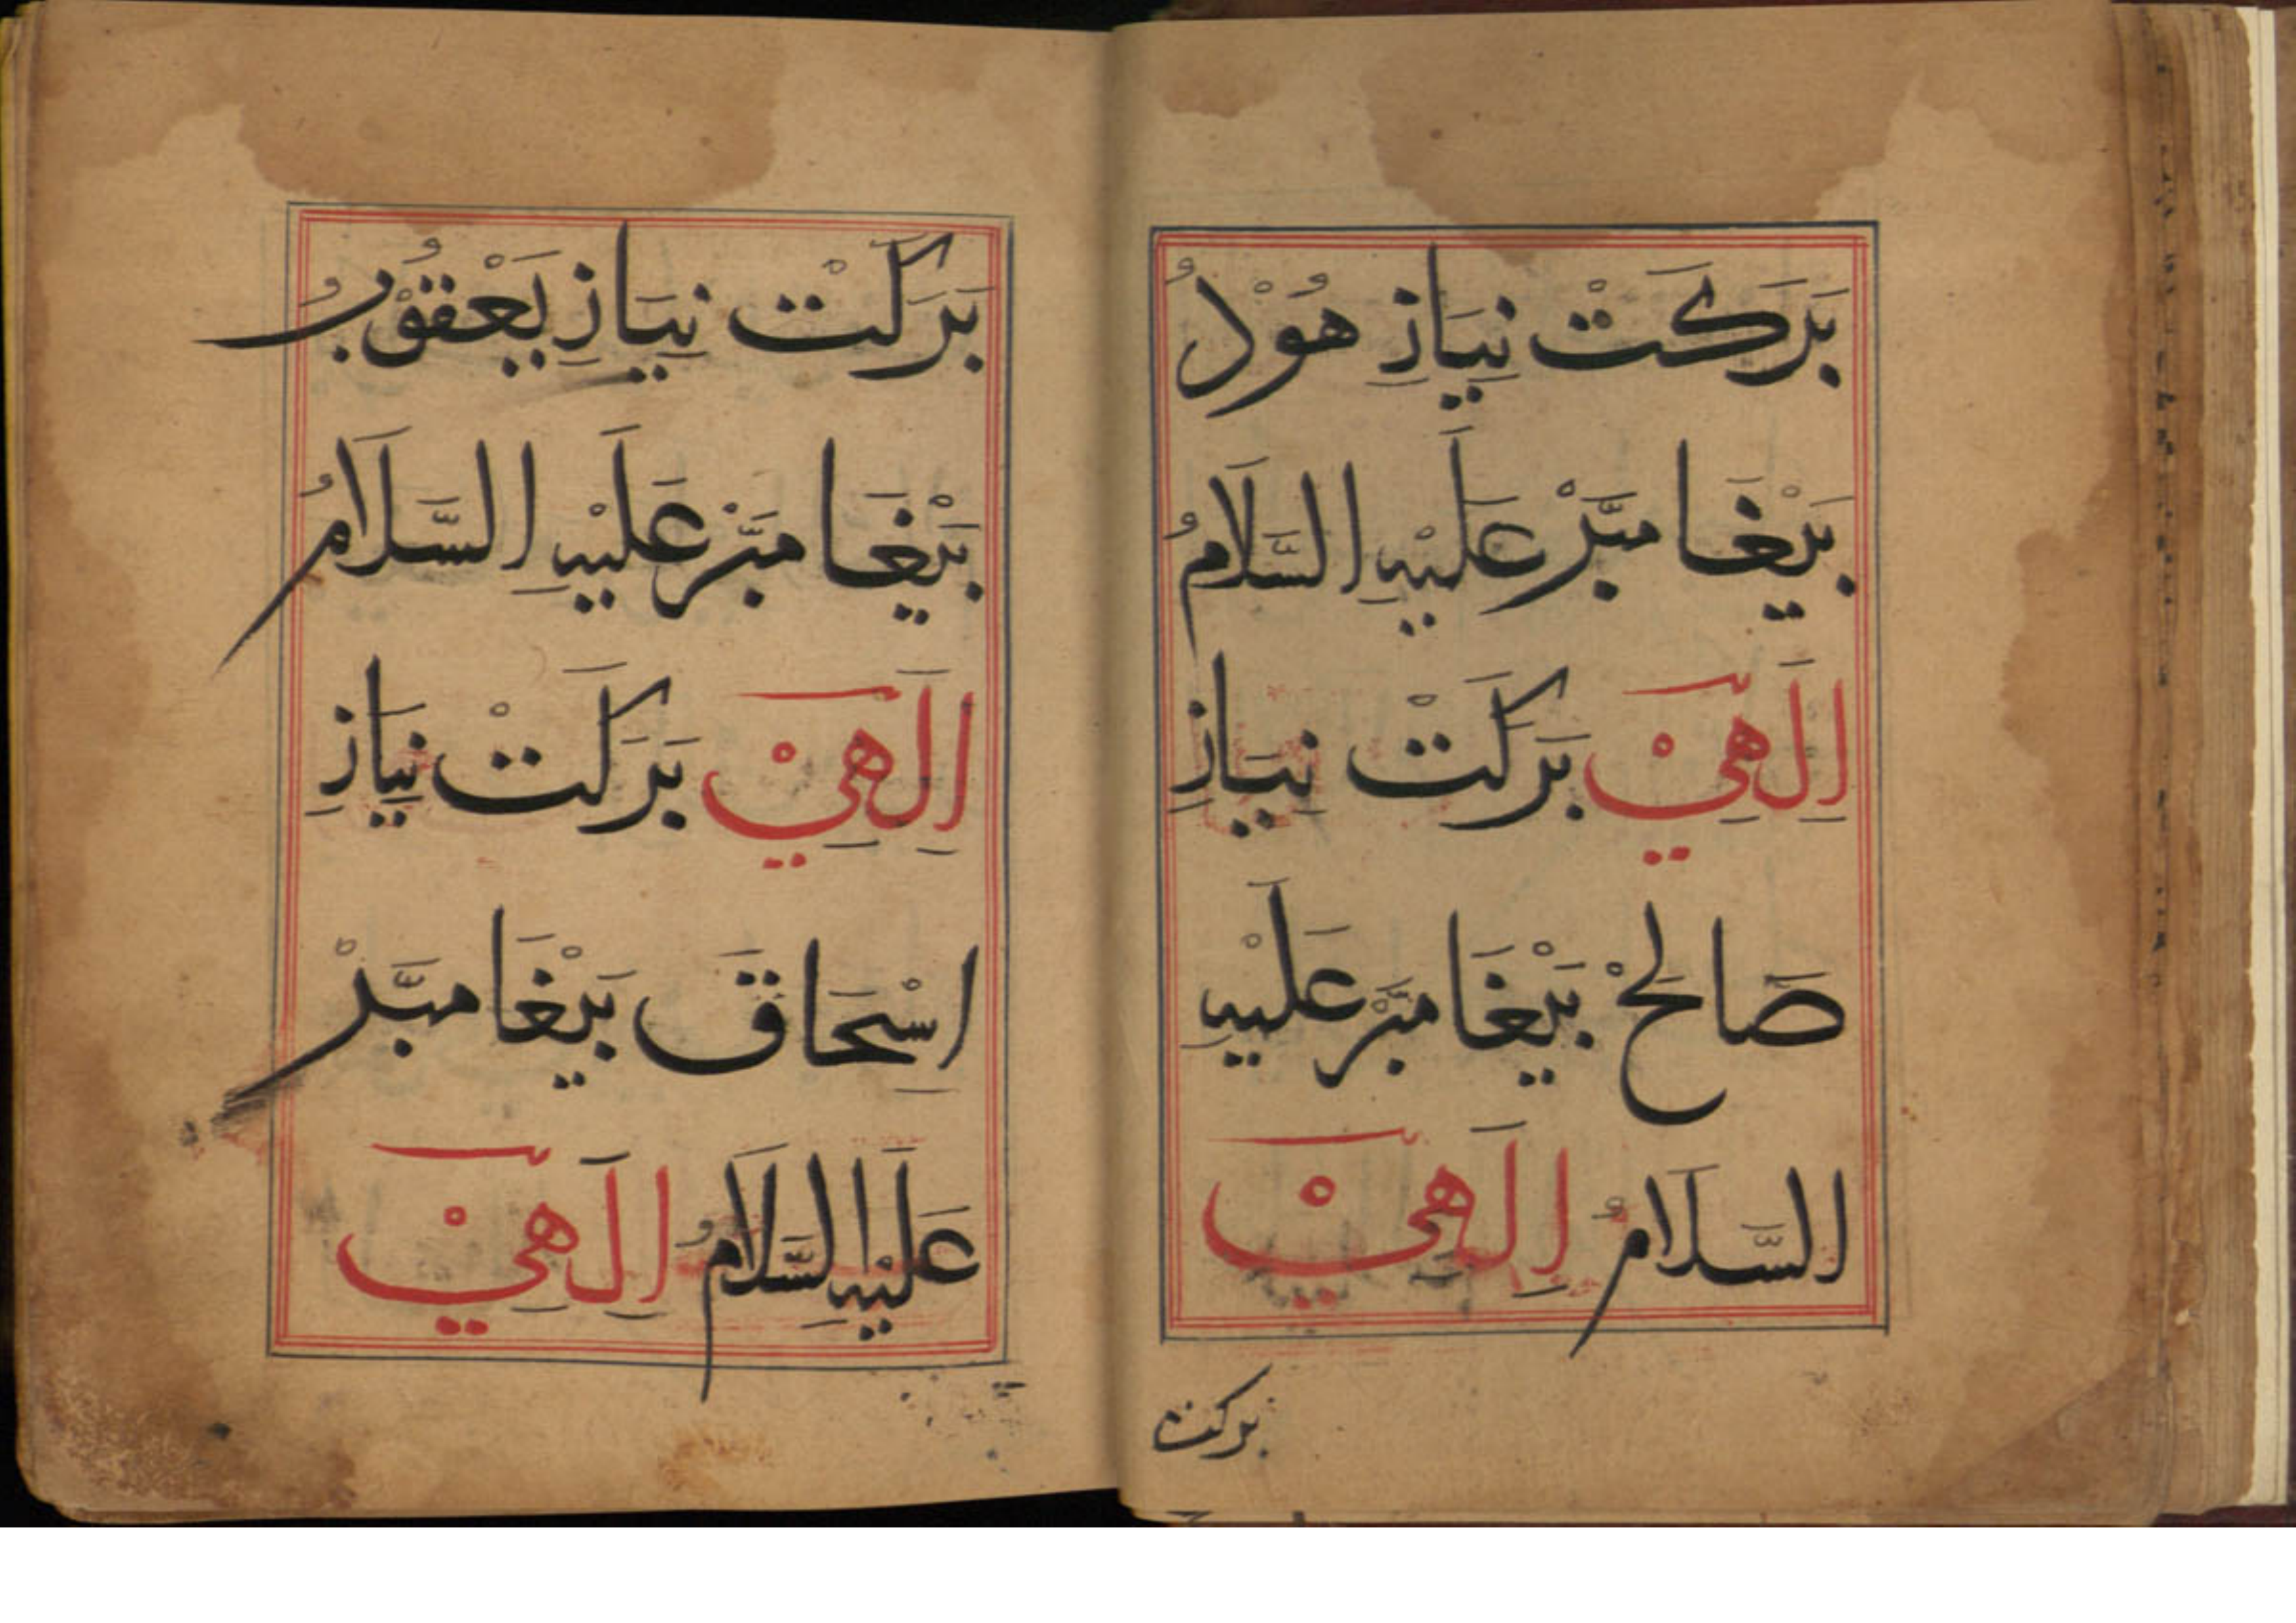 بَرَكَتْ نِيَازِ هُوْدُ
بَيْغَا مبَّرْ عَلَيْهِ السَّلَامُ
اِلَهِيْ بَرَكَتْ نِيَازِ
صَالِحْ بَيْغَا مبَّرْ عَلَيْهِ
السَّلَامُ اِلَهِيْ
بركت
بَرَكَتْ نِيَازِ يَعْقُوْبُ
بَيْغَا مبَّرْ عَلَيْهِ السَّلَامُ
اِلَهِيْ بَرَكَتْ نِيَازِ
اِسْحَاقَ بَيْغَا مبَّرْ
عَلَيْهِ السَّلَامُ اِلَهِيْ